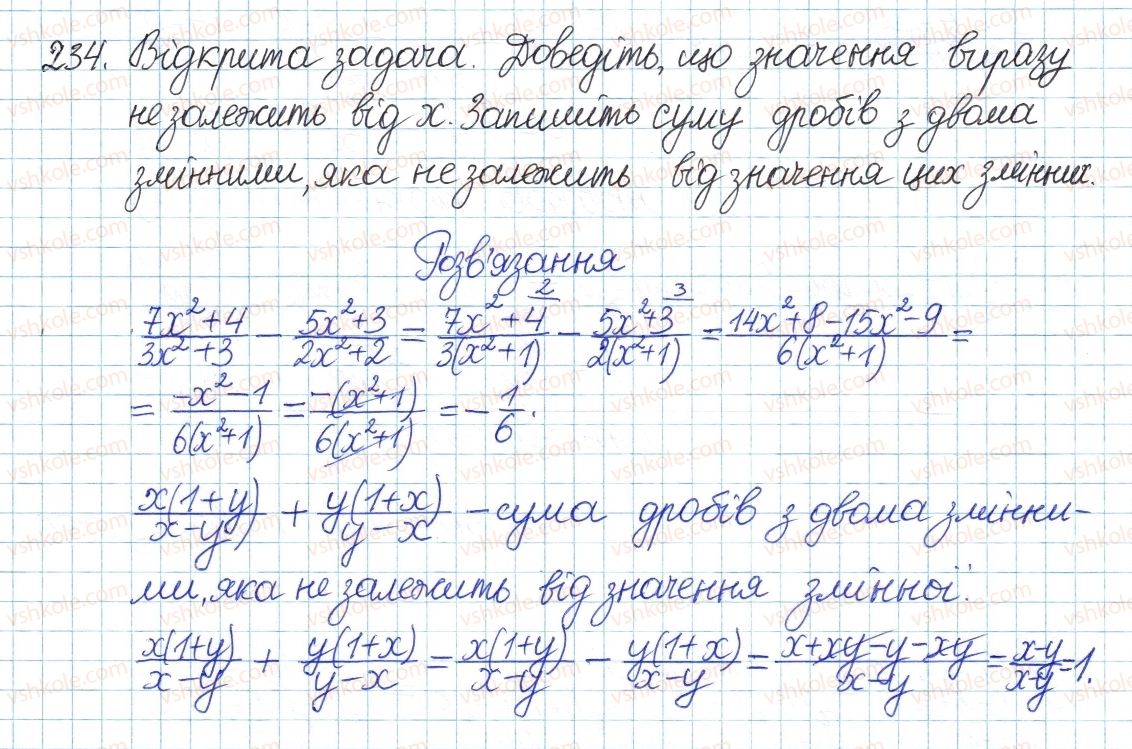 234. Відкрита задача. Доведіть, що значення виразу
не залежить від x. Запишіть суму дробів з двома
змінними, яка не залежить від значення цих змінних.
Розв'язання
(7x²+4)/(3x²+3) − (5x²+3)/(2x²+2) = (7x²+4)/(3(x²+1)) ^2 − (5x²+3)/(2(x²+1)) ^3 = (14x²+8−15x²−9)/(6(x²+1)) =
= (−x²−1)/(6(x²+1)) = (−(x²+1))/(6(x²+1)) = −1/6.
(x(1+y))/(x−y) + (y(1+x))/(y−x) − сума дробів з двома змінни-
ми, яка не залежить від значення змінної.
(x(1+y))/(x−y) + (y(1+x))/(y−x) = (x(1+y))/(x−y) − (y(1+x))/(x−y) = (x+xy−y−xy)/(x−y) = (x−y)/(x−y) = 1.